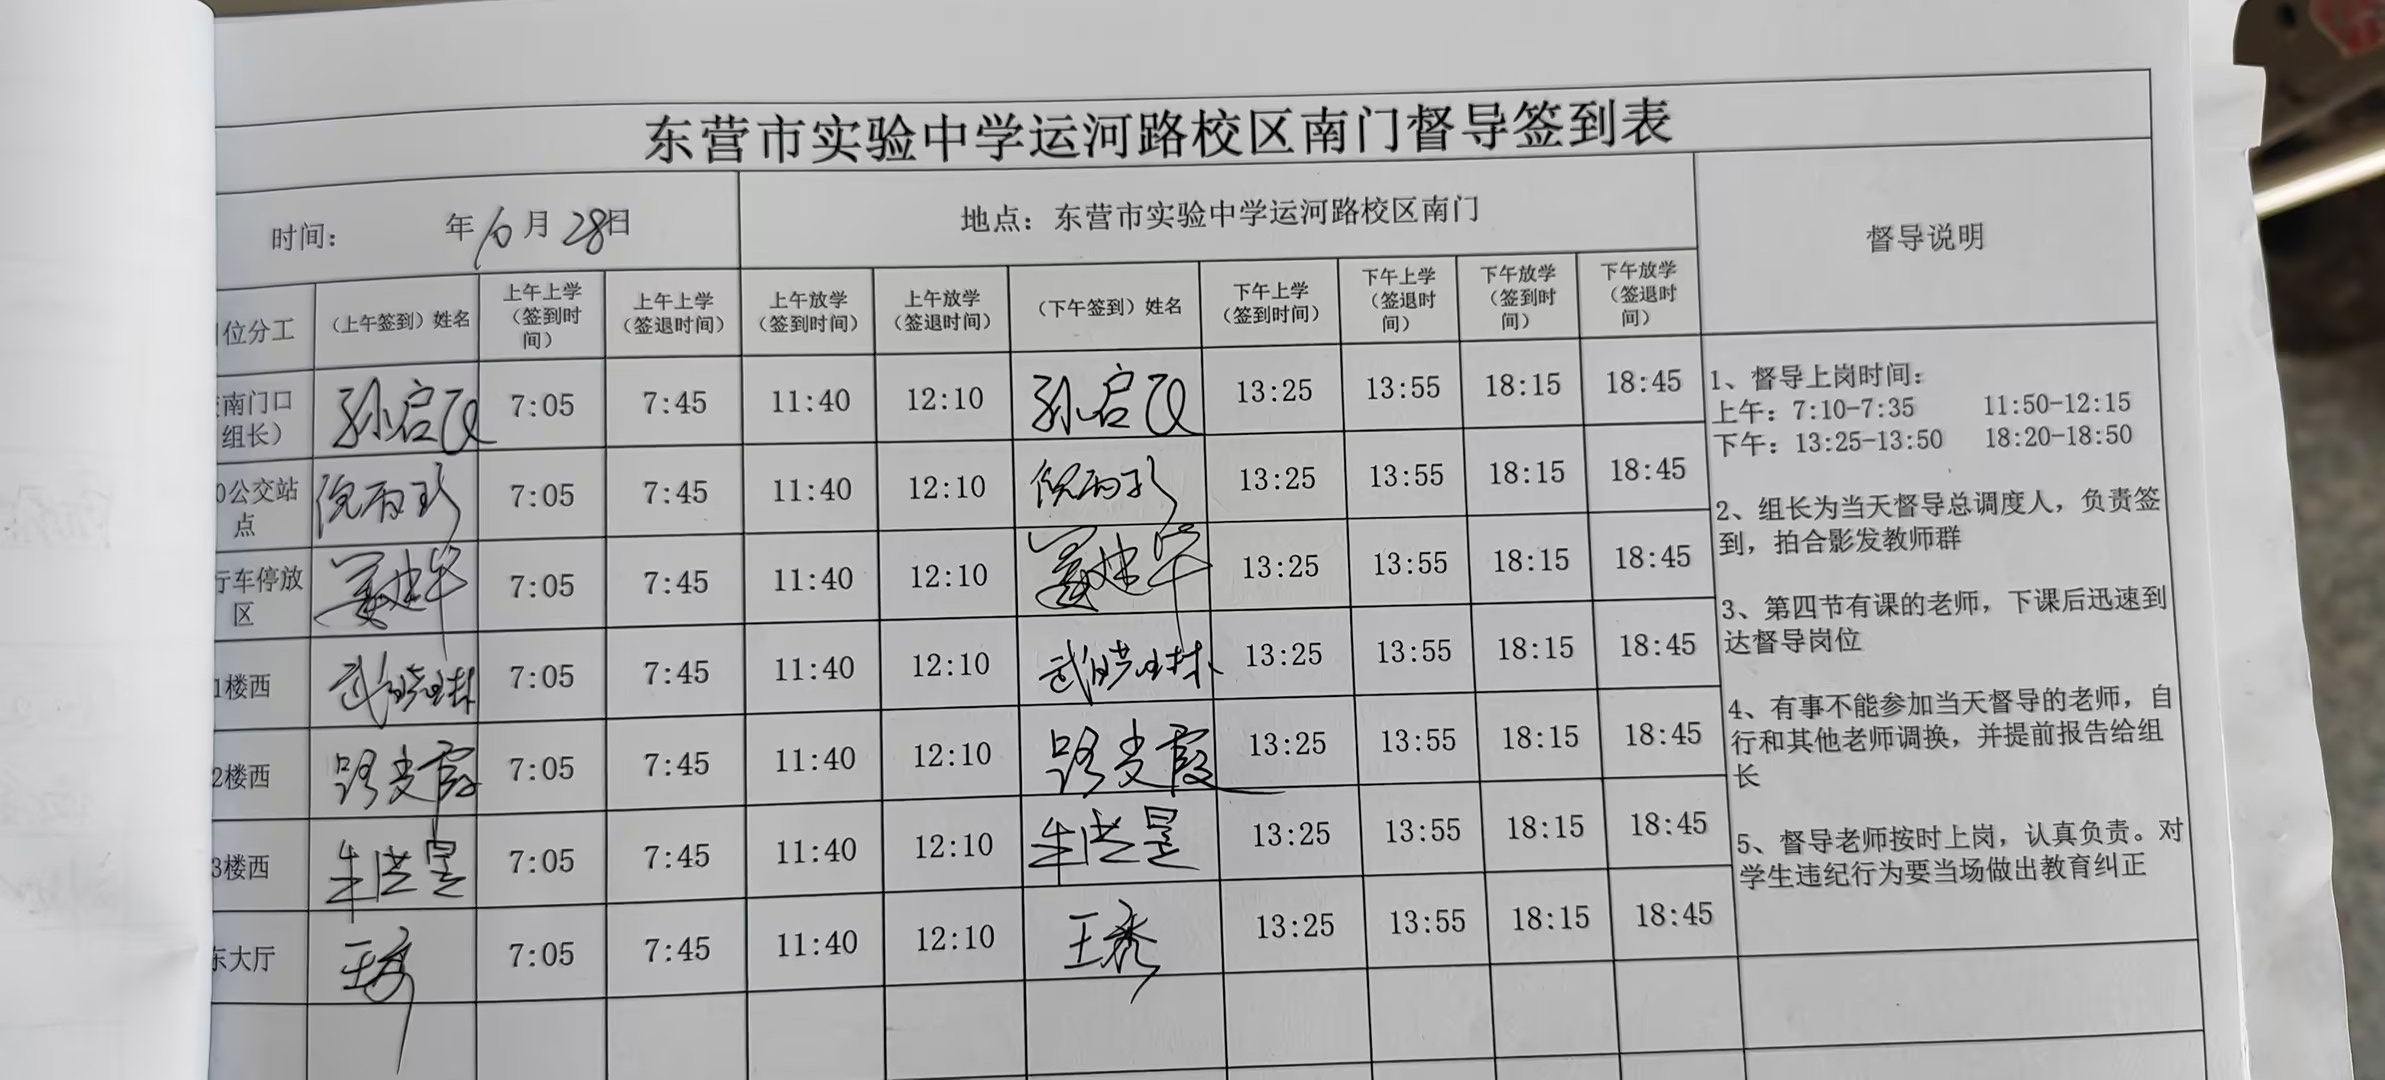 东营市实验中学运河路校区南门督导签到表
时间： 年10月28日 地点：东营市实验中学运河路校区南门 督导说明
位分工 （上午签到）姓名 上午上学（签到时间） 上午上学（签退时间） 上午放学（签到时间） 上午放学（签退时间） （下午签到）姓名 下午上学（签到时间） 下午上学（签退时间） 下午放学（签到时间） 下午放学（签退时间）
南门口组长） 7:05 7:45 11:40 12:10 13:25 13:55 18:15 18:45
0公交站点 7:05 7:45 11:40 12:10 13:25 13:55 18:15 18:45
行车停放区 7:05 7:45 11:40 12:10 13:25 13:55 18:15 18:45
1楼西 武晓琳 7:05 7:45 11:40 12:10 武晓琳 13:25 13:55 18:15 18:45
2楼西 路文霞 7:05 7:45 11:40 12:10 路文霞 13:25 13:55 18:15 18:45
3楼西 7:05 7:45 11:40 12:10 13:25 13:55 18:15 18:45
东大厅 王秀 7:05 7:45 11:40 12:10 王秀 13:25 13:55 18:15 18:45
1、督导上岗时间：
上午：7:10-7:35 11:50-12:15
下午：13:25-13:50 18:20-18:50
2、组长为当天督导总调度人，负责签
到，拍合影发教师群
3、第四节有课的老师，下课后迅速到
达督导岗位
4、有事不能参加当天督导的老师，自
行和其他老师调换，并提前报告给组
长
5、督导老师按时上岗，认真负责。对
学生违纪行为要当场做出教育纠正